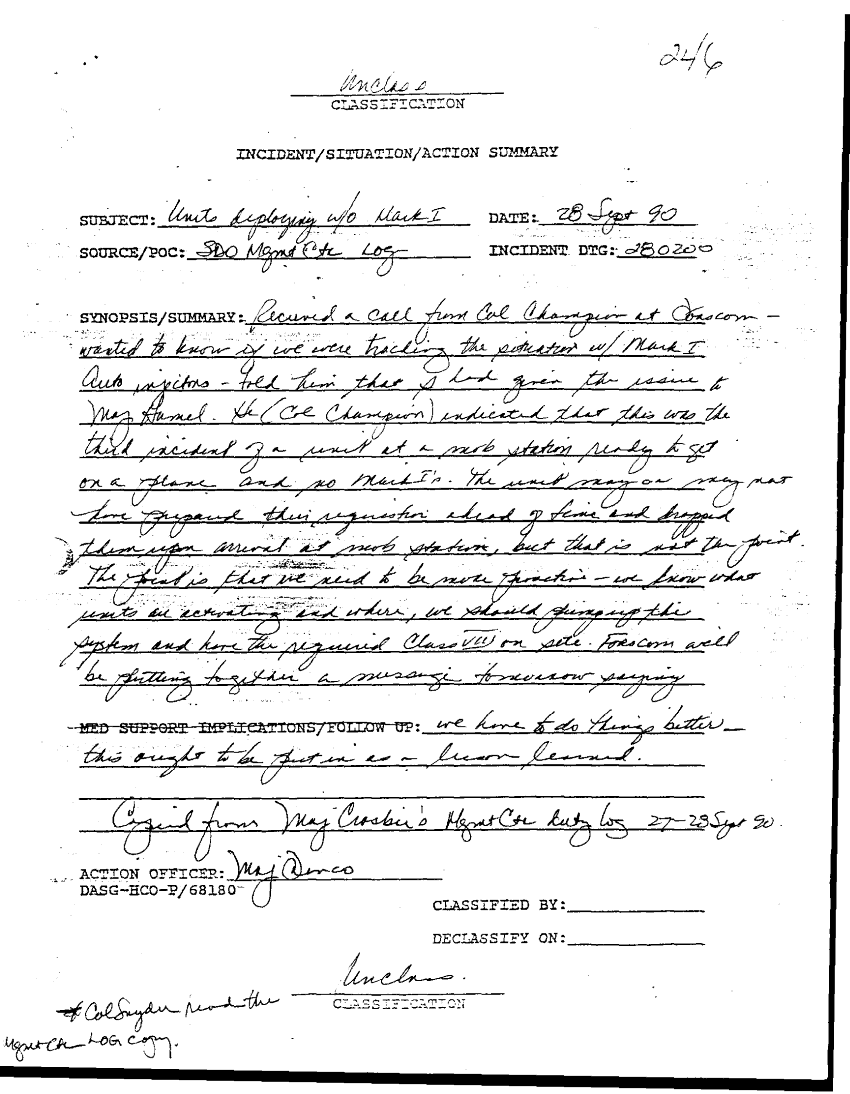 24/6
Unclass
CLASSIFICATION
INCIDENT/SITUATION/ACTION SUMMARY
SUBJECT: Units deploying w/o Mark I DATE: 28 Sept 90
SOURCE/POC: SDO Mgmt Ctr Log INCIDENT DTG: 280200
SYNOPSIS/SUMMARY: Received a call from Col Champion at Forscom -
wanted to know if we were tracking the situation w/ Mark I
Auto injectors - told him that I had given the issue to
Maj Hamel. He (Col Champion) indicated that this was the
third incident of a unit at a mob station ready to get
on a plane and no Mark I's. The unit may or may not
have prepared their requisition ahead of time and dropped
them upon arrival at mob station, but that is not the point.
The point is that we need to be more proactive - we know what
units are activating and where, we should pump up the
system and have the required Class VIII on site. Forscom will
be putting together a message tomorrow saying
MED SUPPORT IMPLICATIONS/FOLLOW UP: we have to do things better -
this ought to be put in as a lesson learned.
Copied from Maj Crosbie's Mgmt Ctr duty log 27-28 Sept 90.
ACTION OFFICER: Maj
DASG-HCO-P/68180
CLASSIFIED BY:
DECLASSIFY ON:
Unclass.
CLASSIFICATION
* Col Snyder read the
Mgmt Ctr LOG copy.